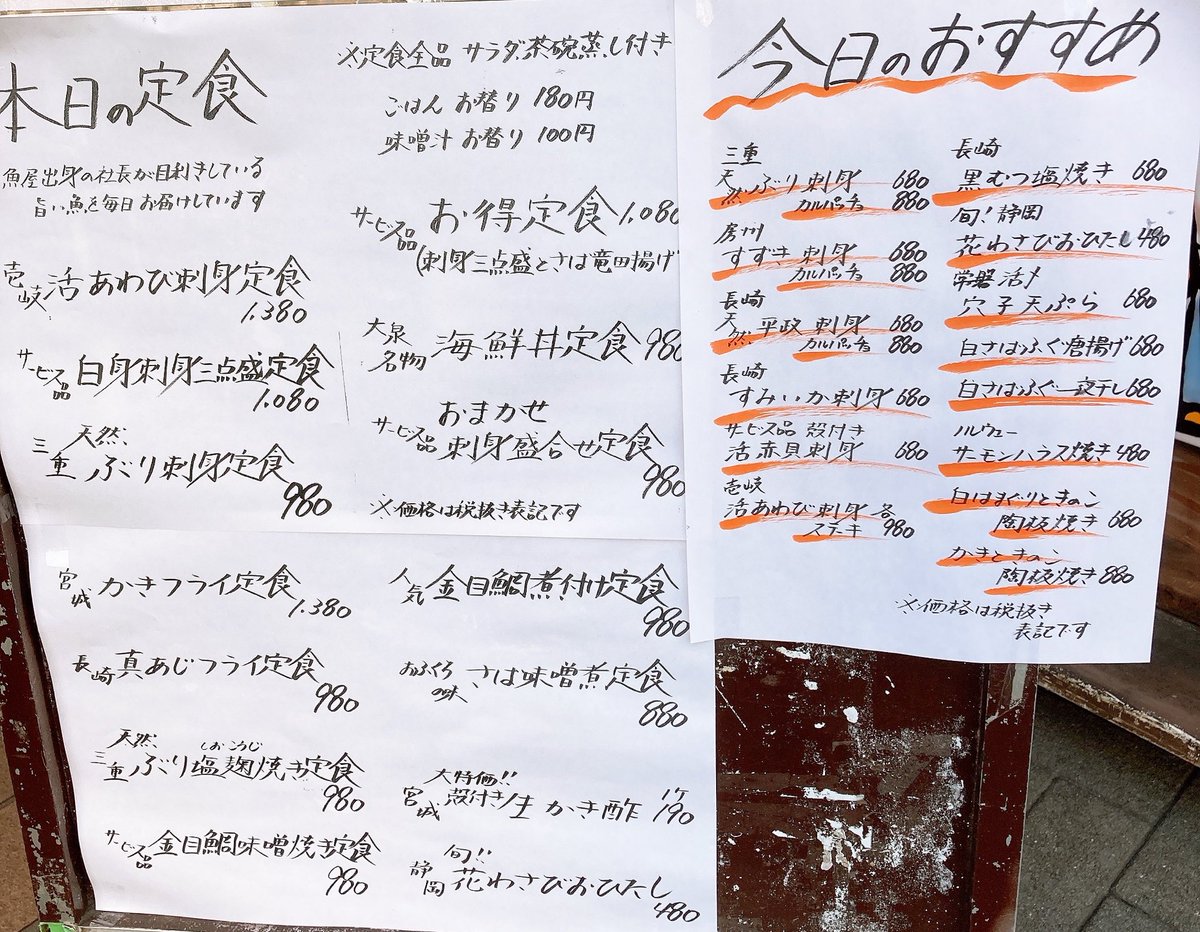 本日の定食
魚屋出身の社長が目利きしている
旨い魚を毎日お届けしています
壱岐 活あわび刺身定食
1.380
サービス品 白身刺身三点盛定食
1.080
三重 天然、ぶり刺身定食
980
※定食全品 サラダ、茶碗蒸し付き
ごはん お替り 180円
味噌汁 お替り 100円
サービス品 お得定食 1.080
(刺身三点盛とさば竜田揚げ
大泉名物 海鮮丼定食 980
サービス品 おまかせ
刺身盛合せ定食
980
※価格は税抜き表記です
宮城 かきフライ定食
1.380
長崎 真あじフライ定食
980
天然、
三重 ぶり塩麹焼き定食
しおこうじ
980
サービス品 金目鯛味噌焼き定食
980
人気 金目鯛煮付け定食
980
おふくろの味 さば味噌煮定食
880
大特価!!
宮城 殻付き生かき酢 1ケ 190
旬!!
静岡 花わさびおひたし
480
今日のおすすめ
三重
天然ぶり刺身 680
カルパッチョ 880
房州
すずき刺身 680
カルパッチョ 880
長崎
天然平政刺身 680
カルパッチョ 880
長崎
すみいか刺身 680
サービス品 殻付き
活赤貝刺身 680
壱岐
活あわび刺身 各
ステーキ 980
長崎
黒むつ塩焼き 680
旬!静岡
花わさびおひたし 480
常磐活〆
穴子天ぷら 680
白さばふぐ唐揚げ 680
白さばふぐ一夜干し 680
ノルウェー
サーモンハラス焼き 480
白はまぐりときのこ
陶板焼き 680
かきときのこ
陶板焼き 880
※価格は税抜き
表記です